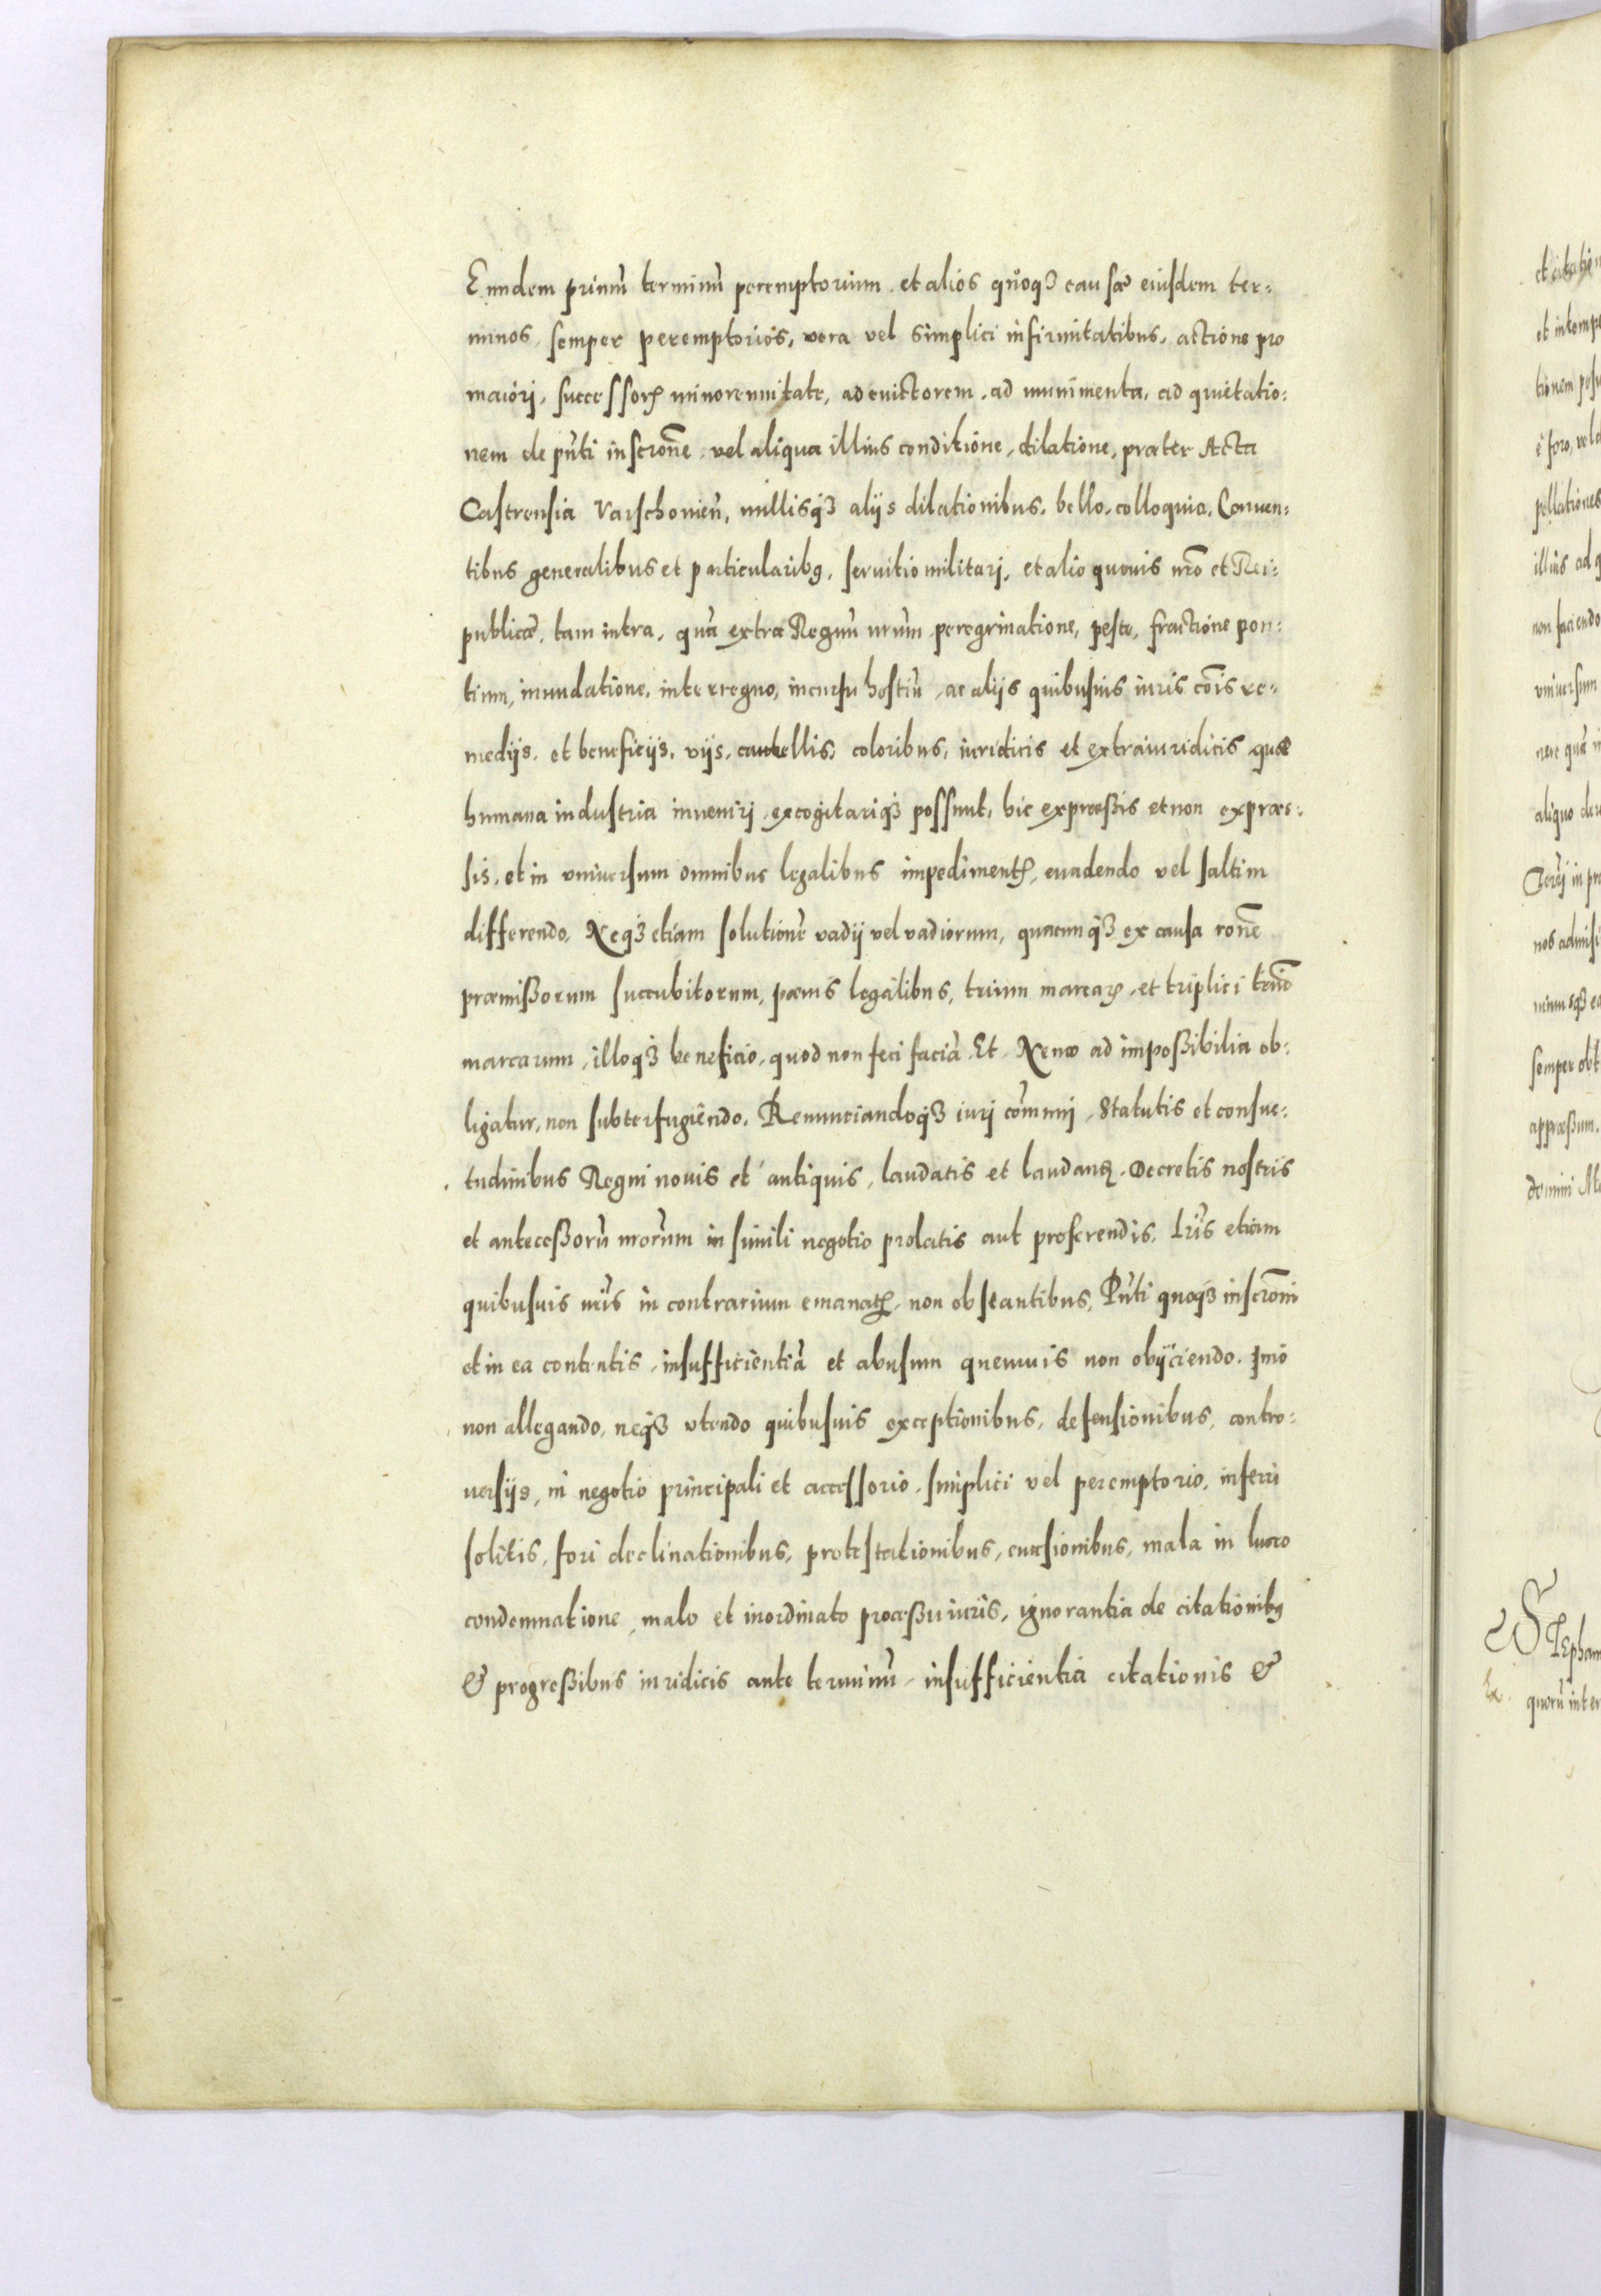 Eundem primũ terminũ peremptorium, et alios quoqȝ causæ eiusdem ter:
minos, semper peremptorios, vera vel simplici infirmitatibus, actione pro
maiori, successorꝝ minorennitate, ad evictorem, ad munimenta, ad quietatio:
nem de pñti inscrõne, vel aliqua illius conditione, dilatione, præter Acta
Castrensia Varschouieñ, nullisqȝ alijs dilationibus, bello, colloquio, Conuen:
tibus generalibus et particularibꝰ, seruitio militari, et alio quouis nr̃o et Rei:
publicæ, tam intra, quã extra Regnũ nr̃um peregrinatione, peste, fractione pon:
tium, inundatione, interregno, incursu hostiũ, ac alijs quibusuis iuris cõis re:
medijs, et beneficijs, vijs, cautellis, coloribus, iuridicis et extraiuridicis quæ
humana industria inueniri, excogitariqȝ possunt, hic expræssis et non expræs:
sis, et in vniuersum omnibus legalibus impedimentꝭ, euadendo vel saltim
differendo, Neqȝ etiam solutionẽ vadij vel vadiorum, quacunqȝ ex causa rõne
præmissorum succubitorum, pœnis legalibus, trium marcaꝝ, et triplici trũo
marcarum, illoqȝ beneficio, quod non feci faciã, Et, Nemo ad impossibilia ob:
ligatur, non subterfugiendo. Renunciandoqȝ iuri cõmuni, Statutis et consue:
tudinibus Regni nouis et antiquis, laudatis et laudanꝭ, Decretis nostris
et antecessorũ nr̃orum in simili negotio prolatis aut proferendis, Lr̃is etiam
quibusuis nr̃is in contrarium emanatꝭ, non obstantibus, Pñti quoqȝ inscrõni
et in ea contentis, insufficientiã et abusum quemuis non obijciendo. Imo
non allegando, neqȝ vtendo quibusuis exceptionibus, defensionibus, contro:
uersijs, in negotio principali et accessorio, simplici vel peremptorio, inferri
solitis, fori declinationibus, protestationibus, euasionibus, mala in lucro
condemnatione, malo et inordinato processu iuris, ignorantia de citationibꝰ
& progressibus iuridicis ante terminũ, insufficientia citationis &